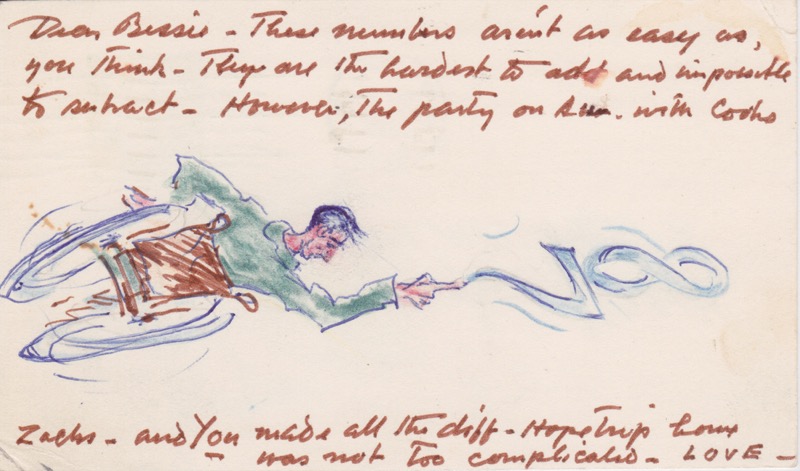 Dear Bessie - These numbers aren't as easy as,
you think - They are the hardest to add and impossible
to subtract - However, The party on Sun. with Cocho
Zachs - and You made all the diff - Hope trip home
was not too complicated - LOVE -